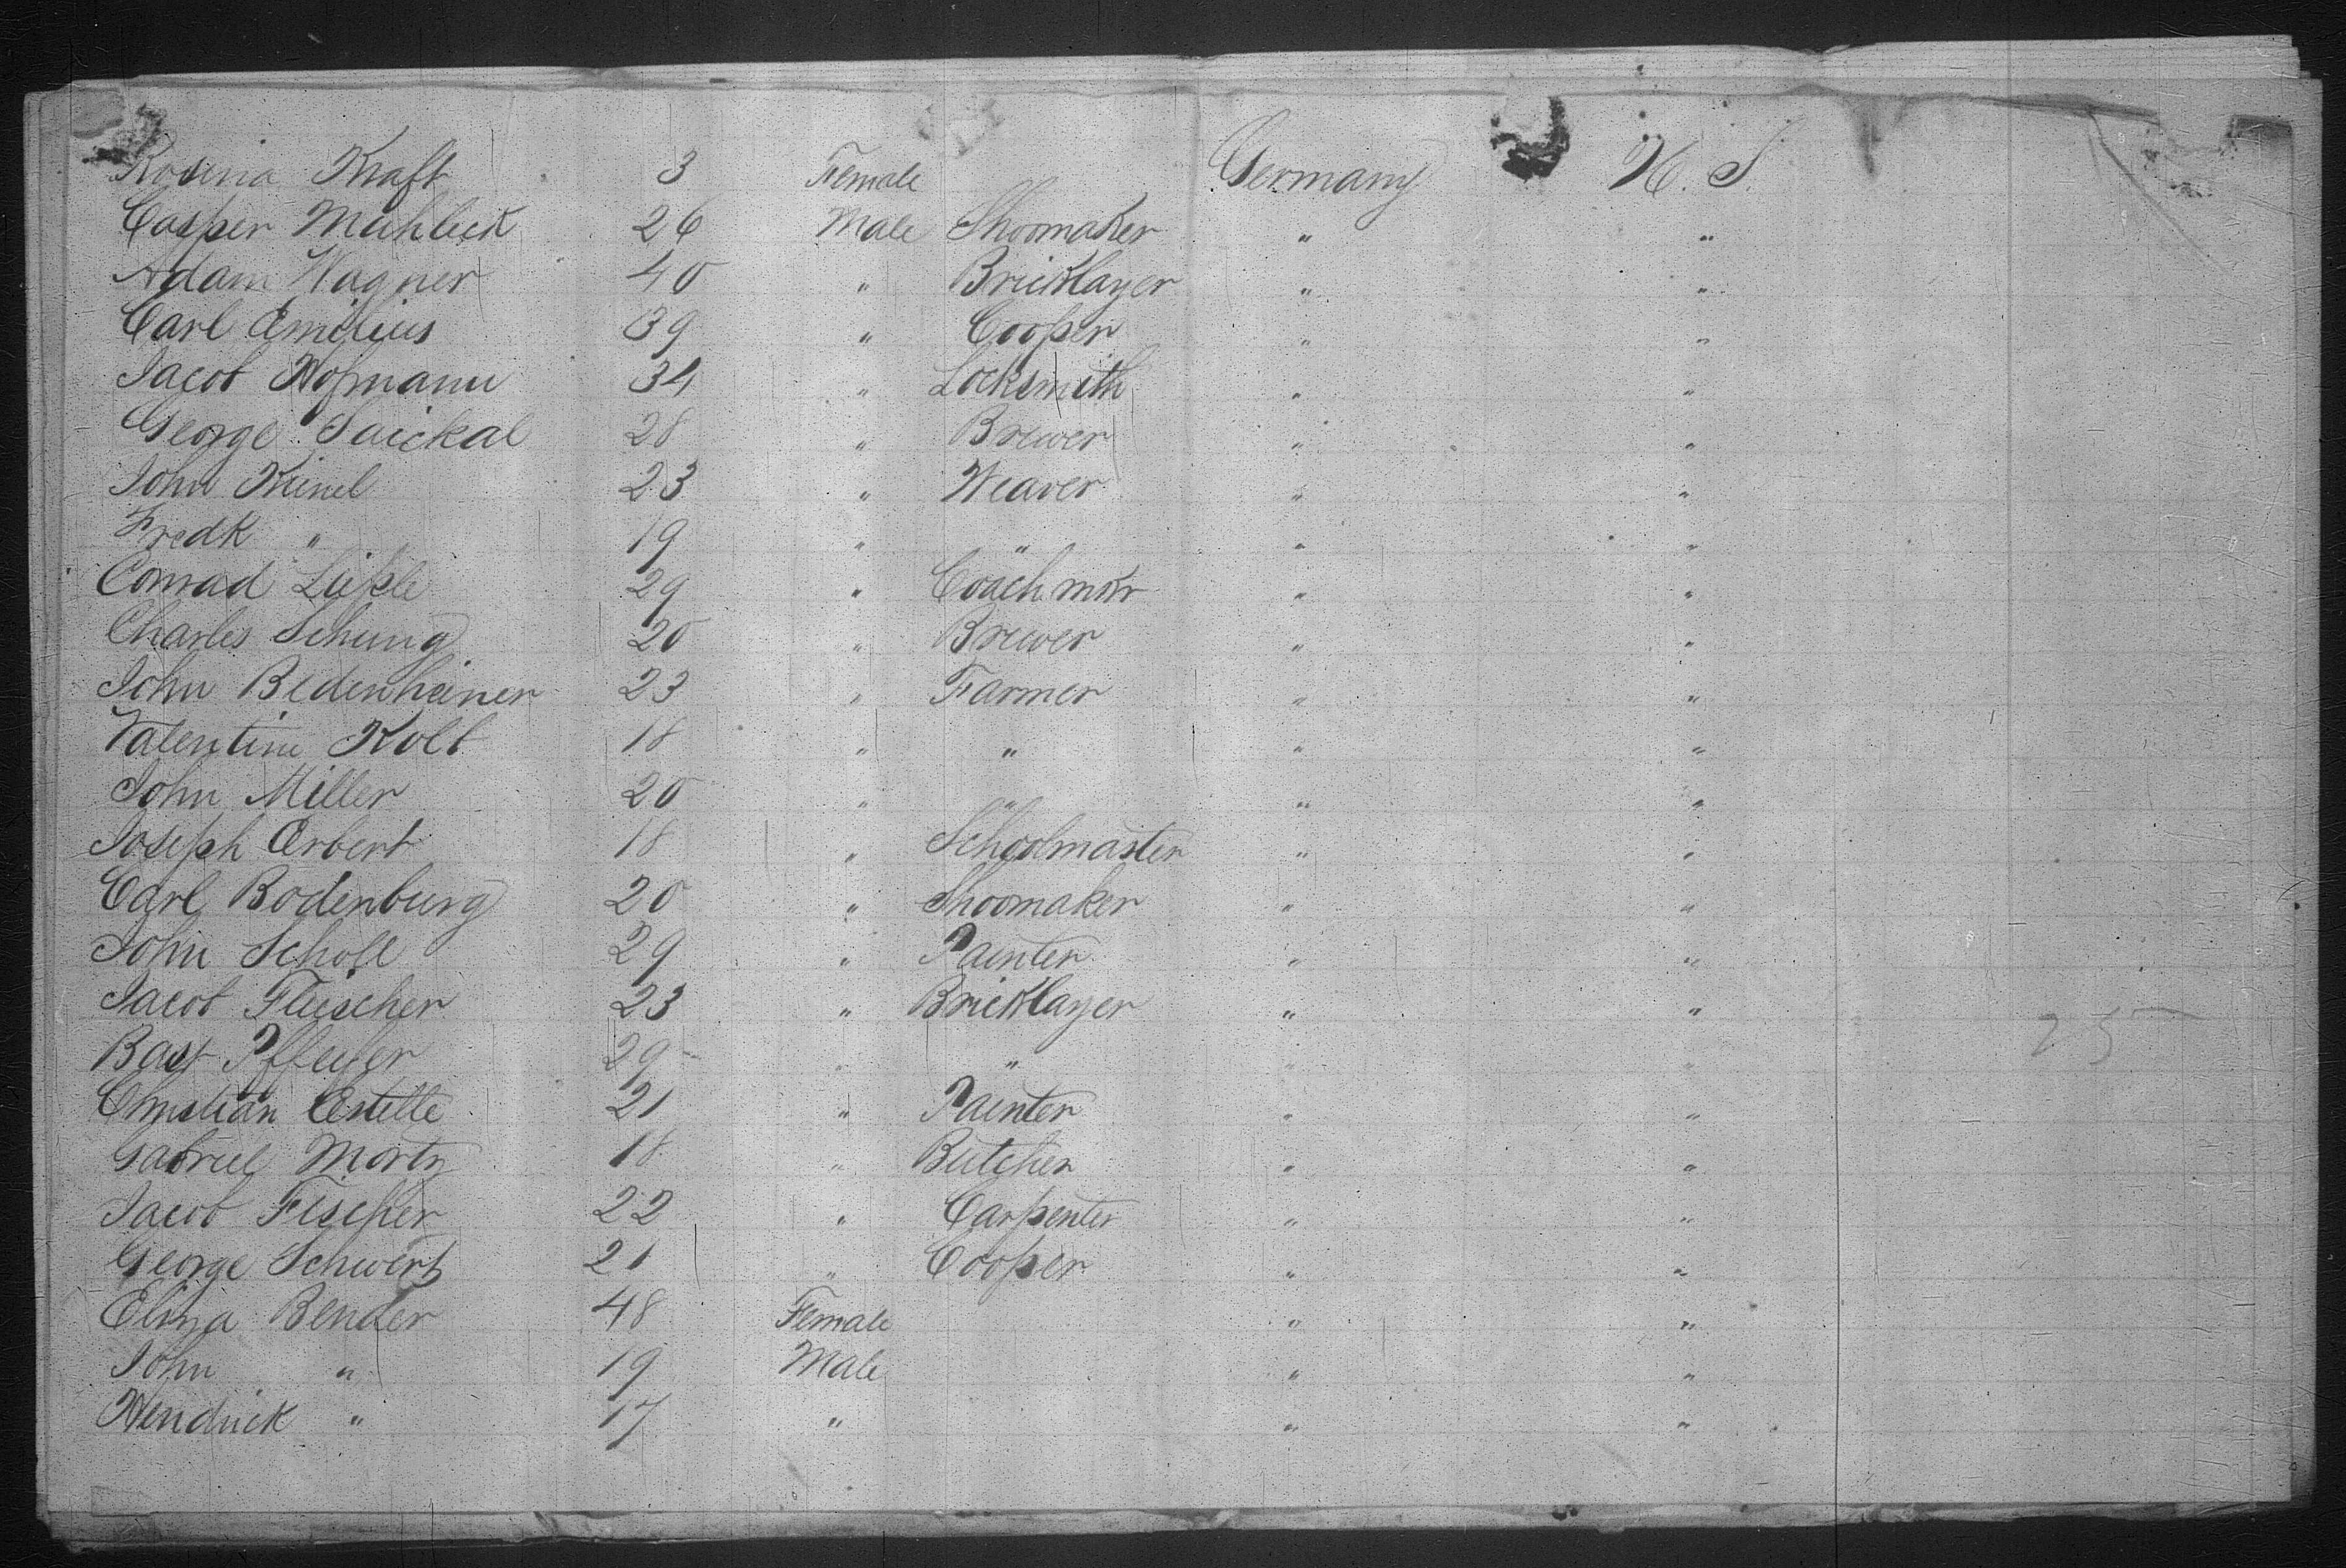 Rosina Kraft 3 Female Germany U. S.
Casper Mehleck 26 Male Shoomaker " "
Adam Wagner 40 " Bricklayer " "
Carl Emilius 39 " Cooper " "
Jacob Hofmann 34 " Locksmith " "
George 28 " Brewer " "
John 23 " Weaver " "
Fredk " 19 " " " "
Conrad 29 " Coach mkr " "
Charles Schung 20 " Brewer " "
John Bedenheiner 23 " Farmer " "
Valentine Kolb 18 " " " "
John Miller 20 " " " "
Joseph Erbert 18 " Schoolmaster " "
Carl Bodenburg 20 " Shoomaker " "
John Scholl 29 " Painter " "
Jacob Fleischer 23 " Bricklayer " "
Bast 29 " " " "
Christian Estelle 21 " Painter " "
Gabriel Mortz 18 " Butcher " "
Jacob Fischer 22 " Carpenter " "
George Schwert 21 " Cooper " "
Eliza Bender 48 Female " "
John " 19 Male " "
Hendrick " 17 " " "
25